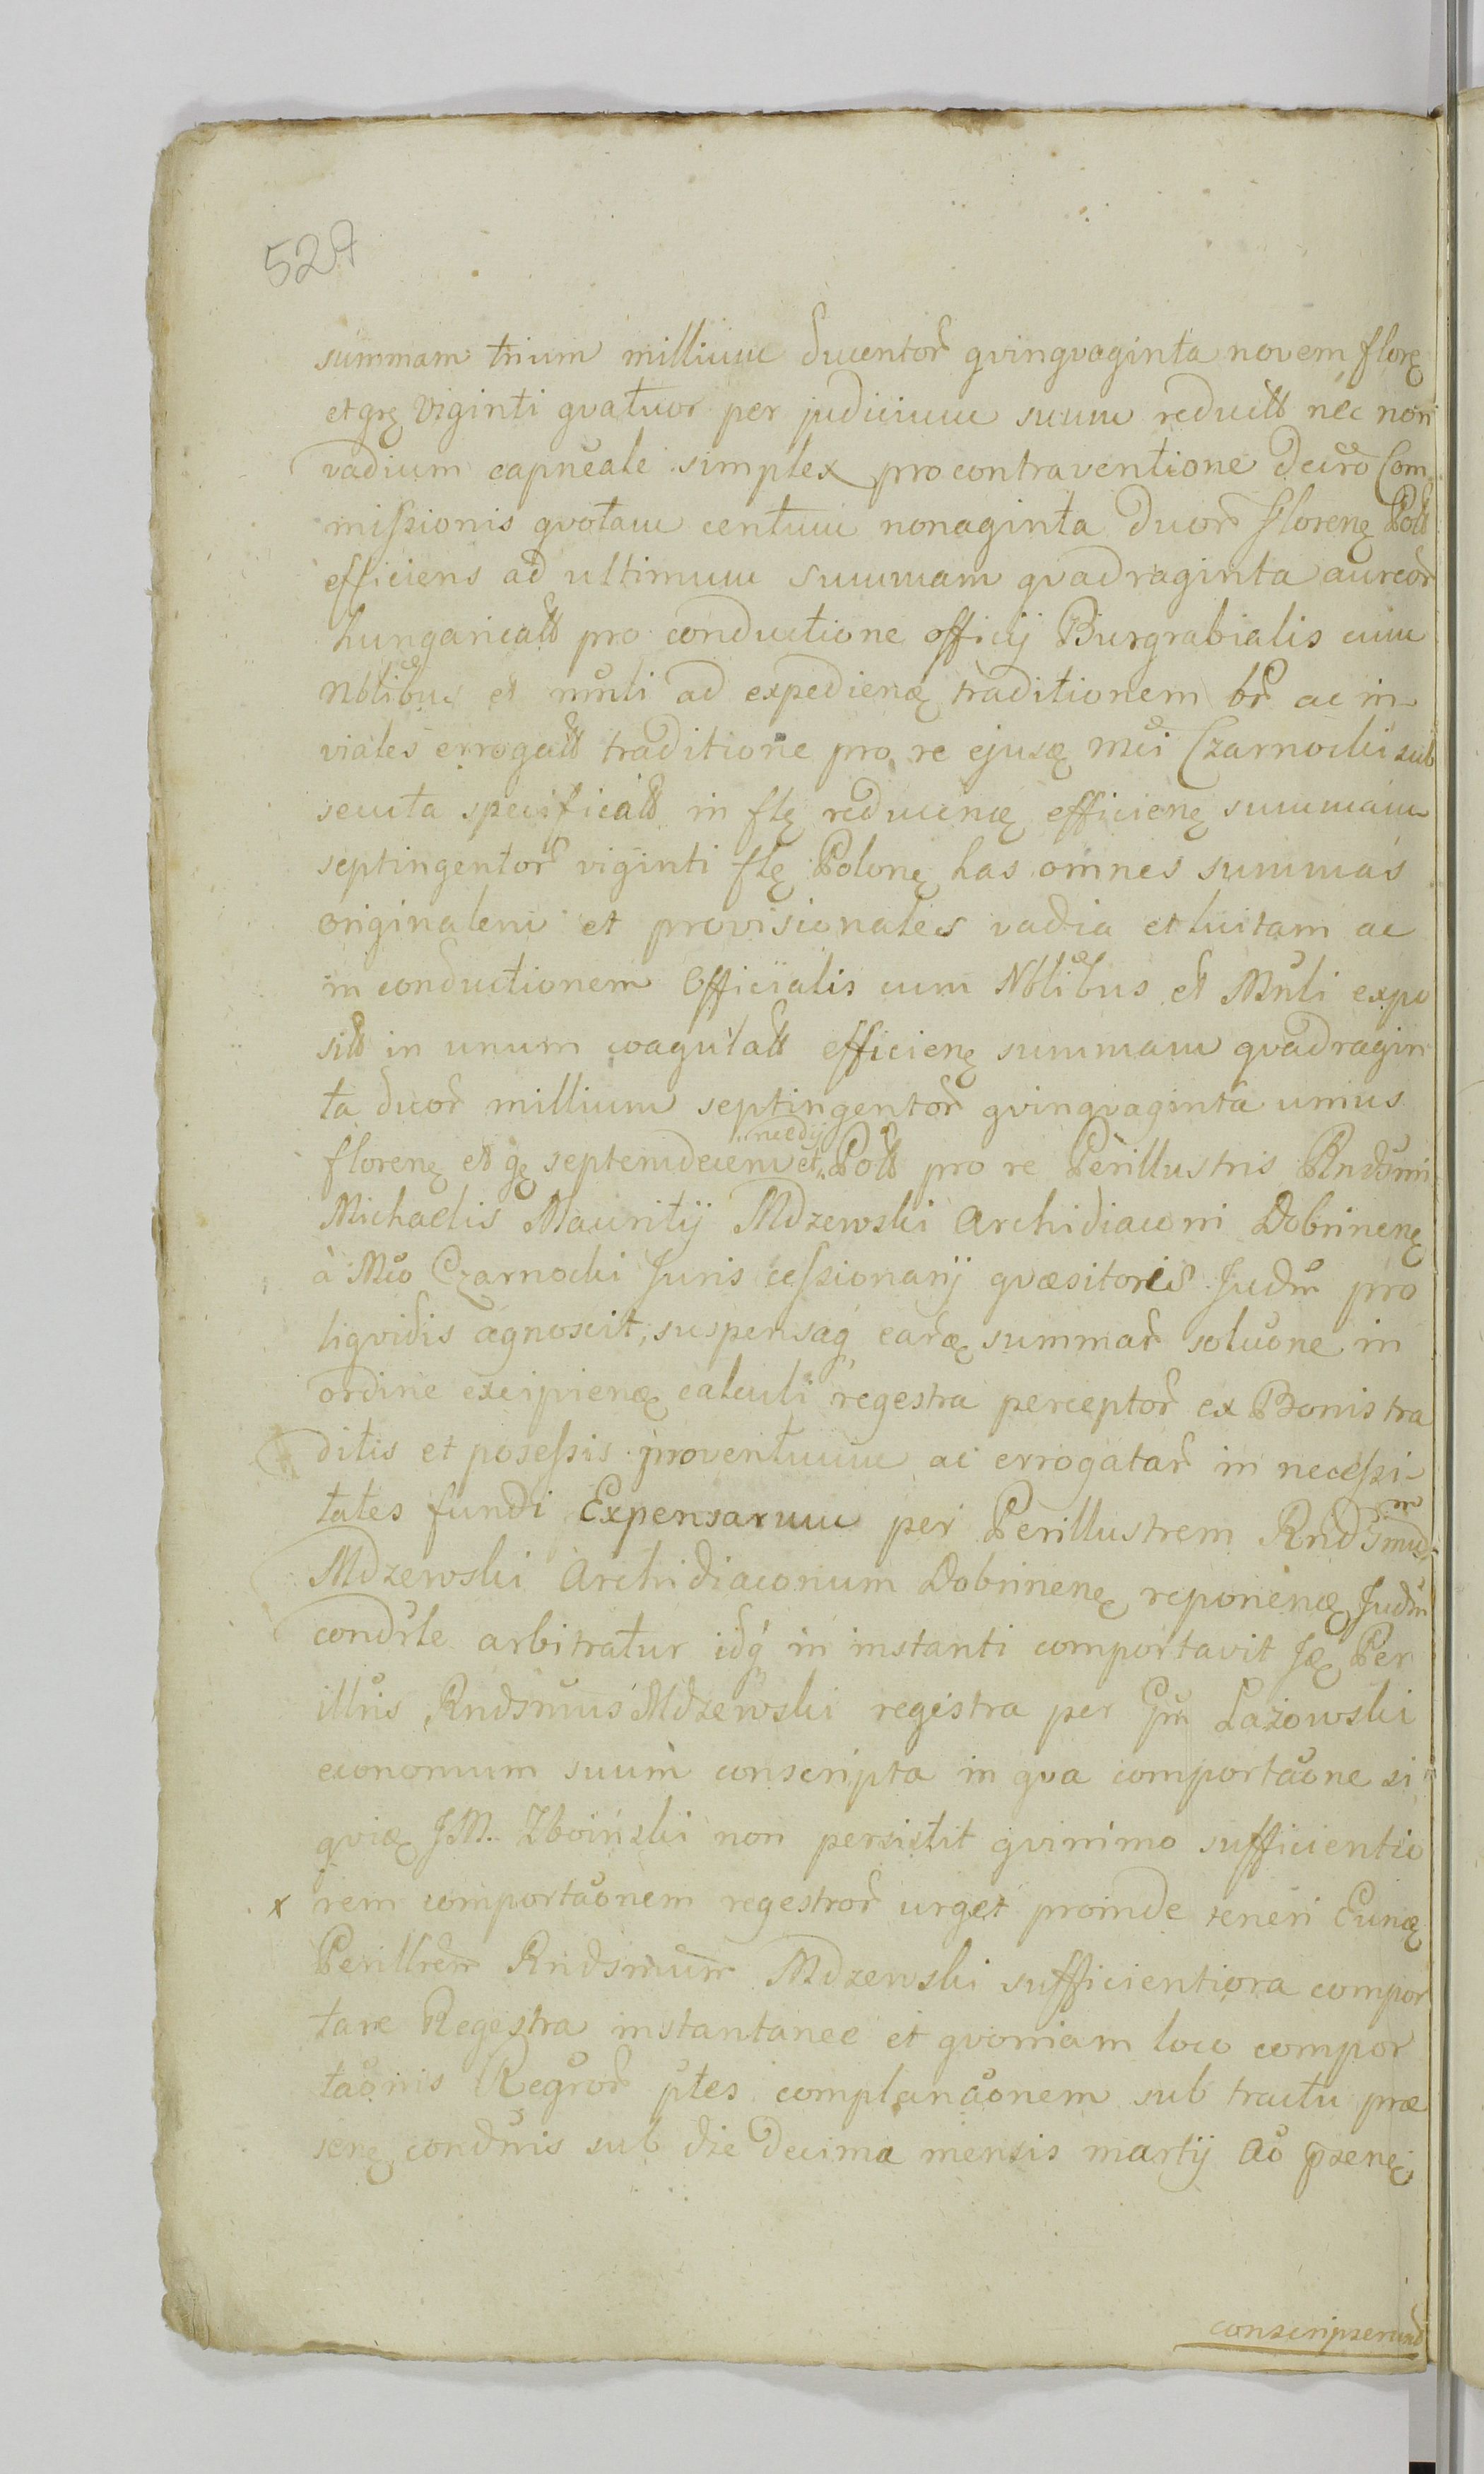 529
summam trium millium ducentor̃ qvinqvaginta novem florę
et grę viginti qvatuor per judicium suum reductt nec non
vadium capneale simplex pro contraventione decro Com
missionis qvotam centum nonaginta duor̃ florenę Poll
efficiens ad ultimum summam qvadraginta aureor̃
hungaricall pro conductione officij Burgrabialis cum
Nblibus et mnli ad expedienę traditionem br̃ ac in
viales errogatt traditione pro re ejusę Mci Czarnocki sub
secuta specificatt in flę reducenę efficienę summam
septingentor̃ viginti flę Polonę has omnes summas
originalem et provisionales vadia et luitam ac
in conductionem Officialis cum Nblibus et Mnli expo
sitt in unum coagulatt efficienę summam qvadragin
ta duor̃ millium septingentor̃ qvinqvaginta unius
florenę et gę septemdecem et medij Poll pro re Perillustris Rndmi
Michaelis Mauritij Mdzewski Archidiaconi Dobrinenę
à Mco Czarnocki Juris cessionarij qvæsitoris Judm pro
liqvidis agnoscit, suspensaq earę summar̃ soluõne in
ordine excipienę calculi regestra perceptor̃ ex Bonis tra
ditis et possessis proventuum ac errogatar̃ in necessi-
tates fundi Expensarum per Perillustrem Rndsmum
Mdzewski Archidiaconum Dobrinenę reponenę Judm
condrle arbitratur idq in instanti comportavit Ję Per
illris Rndsmus Mdzewski regestra per Gr̃ Łazowski
economum suum conscripta in qva comportaõne si
qvię J.M. Zboiński non persistit qvinimo sufficientio
x rem comportaõnem regestror̃ urget proinde teneri Eunę
Perillrem Rndsmum Mdzewski sufficientiora compor
tare Regestra instantanee et qvoniam loco compor
taõnis Regror̃ ptes complanaõnem sub tractu præ
senę condris sub die decima mensis martij Aõ præsenę
conscripserund